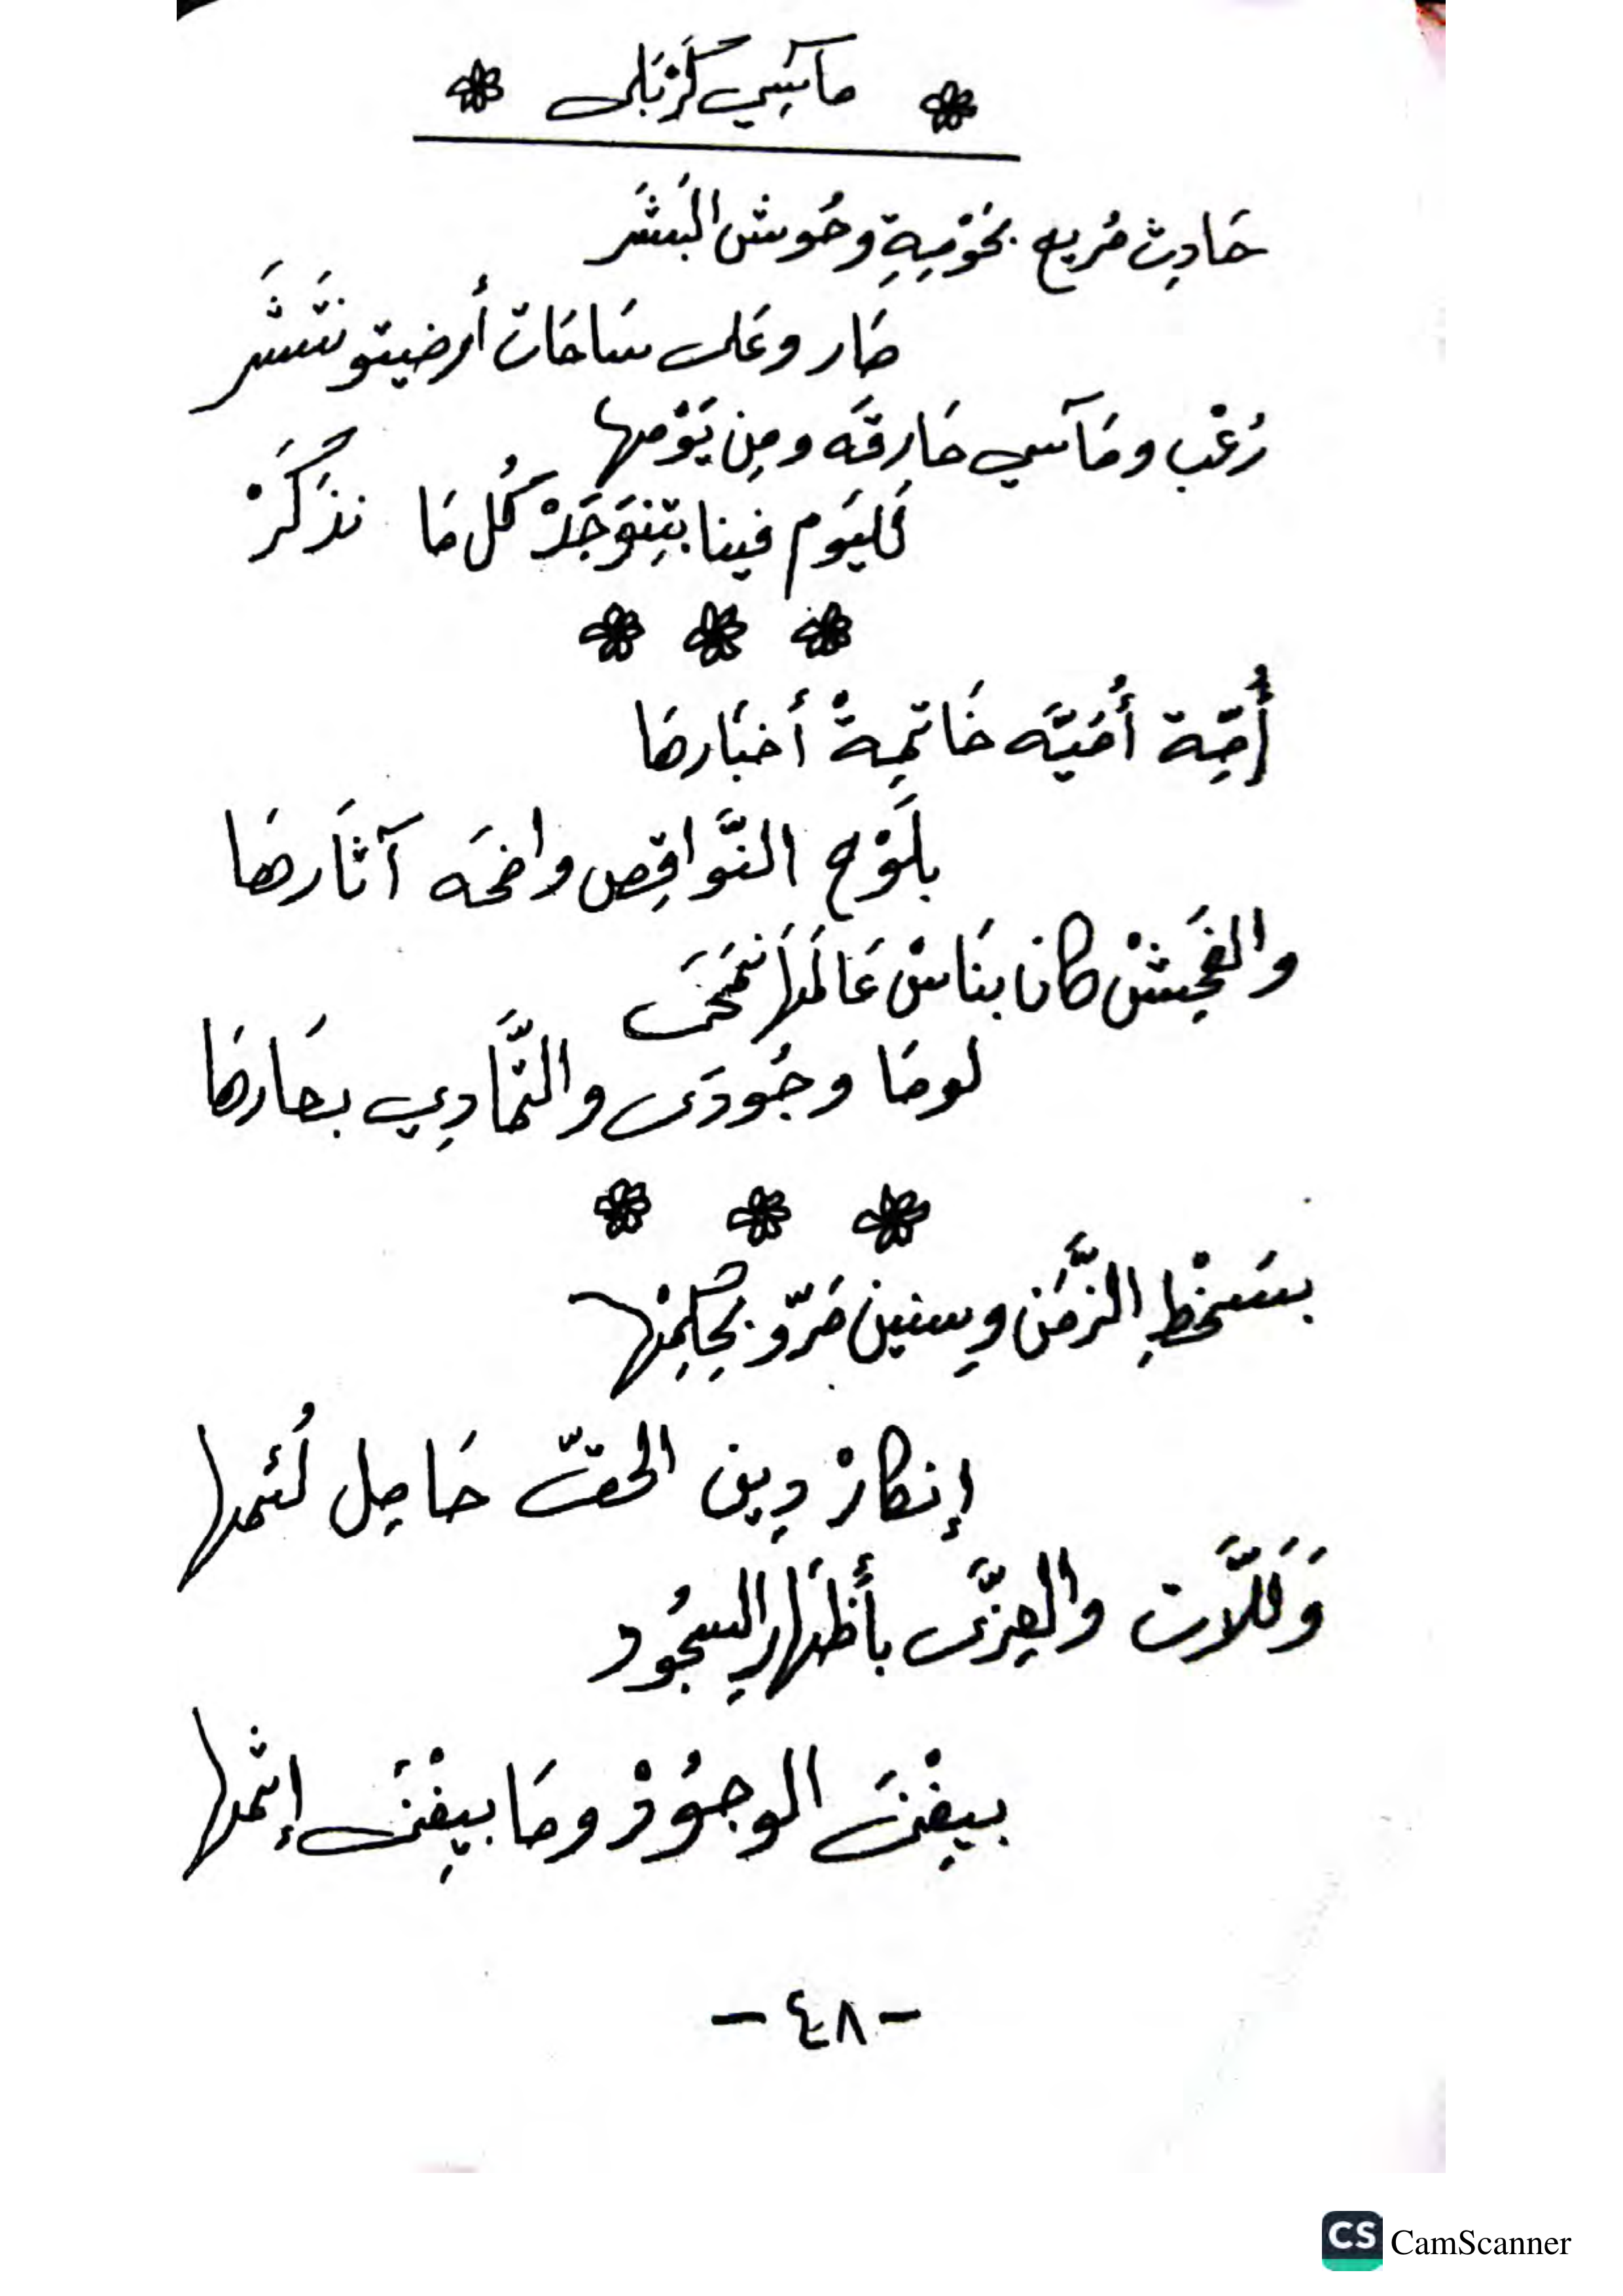 مآسي كَرْبَلى
حَادِث مُريع بحَوْمِةِ وحُوش البَشَر
صَار وعَلى سَاحَات أرضيتو نتَشَر
رُعْب ومَآسي حَارقَه ومِن يَوْمها
لَليَوم فينا بتِنوَجَدْ كُل مَا نذَكَرْ
أُمِّة أُمَيَّه خَاتمِةْ أخبَارها
بلَوْح النَّواقِص واضحَه آثَارهَا
والفَحِشْ كانا بنَاسْ عَالَمْها نمَحَى
لومَا وجُودَى والتَّمَادِي بعَارهَا
بسَخْطِ الزَّمَن وسِنين مَرّو بحِكِمْها
إنكارْ دِين الحقّ حَاصِل لُئمها
وَللَّات والعِزَّى بأَظهَارِ السجُود
بيفِنْىَ الوجوُدْ ومَا بيِفْنَى إثمها
-٤٨-
CS CamScanner